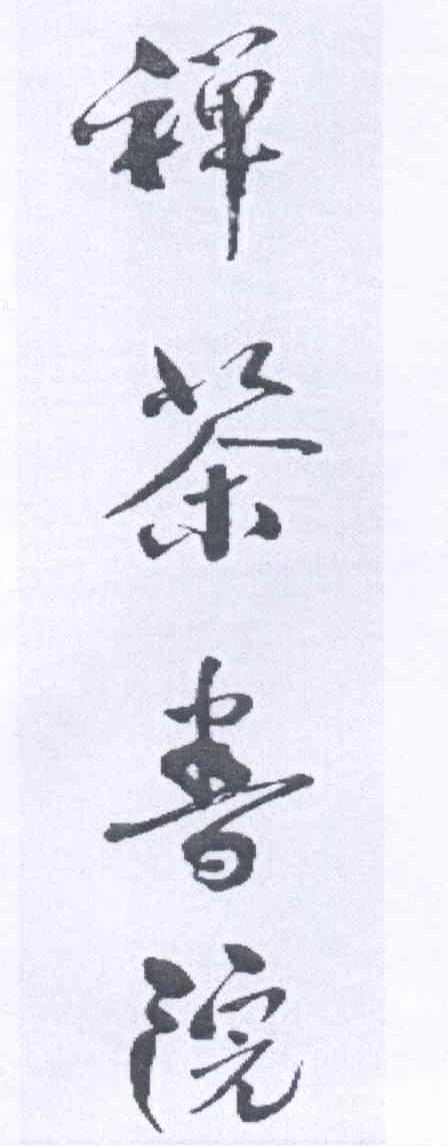 禪茶書院